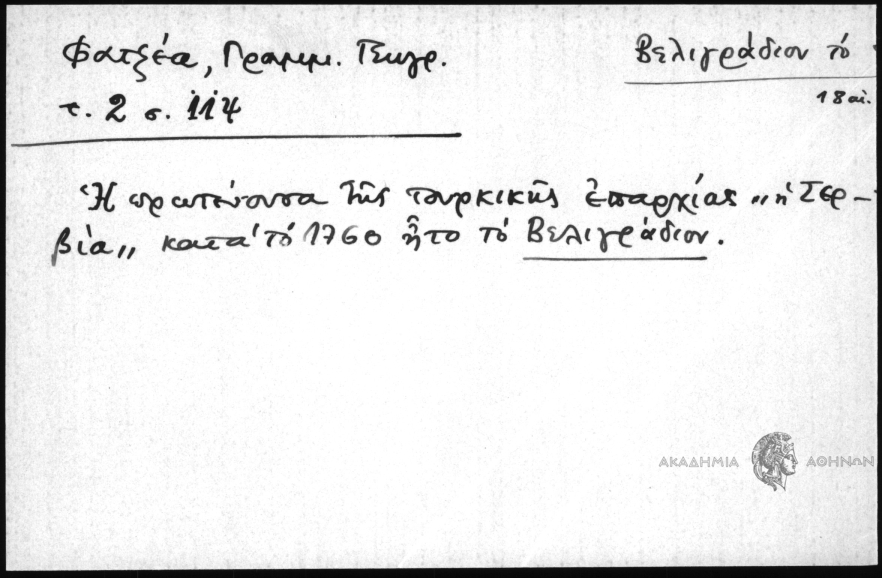 Φατζέα, Γραμμ. Γεωγρ.
τ. 2 σ. 114
Βελιγράδιον τό
18 αἰ.
Ἡ πρωτεύουσα τῆς τουρκικῆς ἐπαρχίας „ἡ Σερ-
βία„ κατά τό 1760 ἦτο τό Βελιγράδιον.
ΑΚΑΔΗΜΙΑ ΑΘΗΝΩΝ